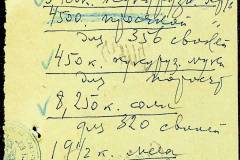 4500. просяной "
для 356 свиней
450 к. кукуруз. мука
для поросят
8,250 к. соли
для 320 свиней
19 1/2 к. мела